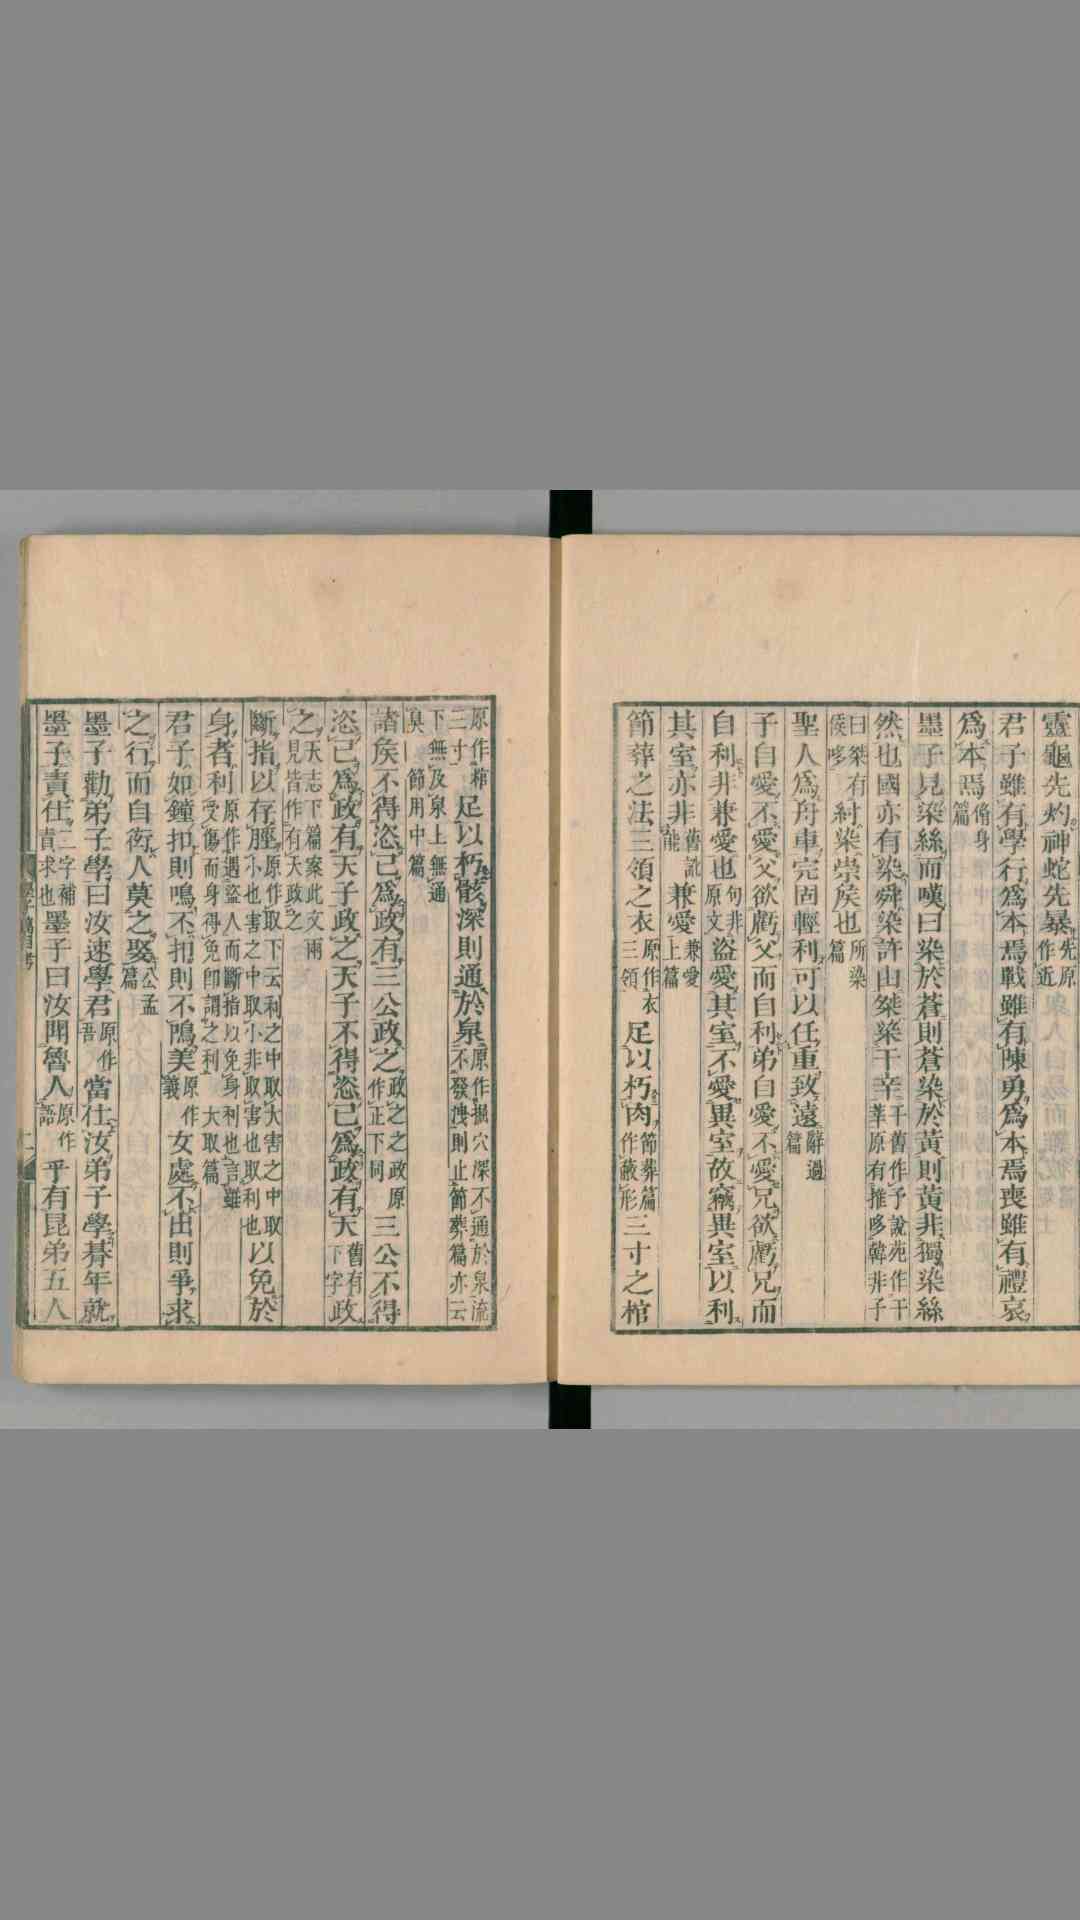 靈龜先灼神蛇先暴先原作近
君子雖有學行爲本焉戰雖有陳勇爲本焉喪雖有禮哀
爲本焉脩身篇
墨子見染絲而嘆曰染於蒼則蒼染於黃則黃非獨染絲
然也國亦有染舜染許由桀染干辛干舊作予說苑作干莘原有推哆韓非子
曰桀有侯哆紂染崇矦也所染篇
聖人爲舟車完固輕利可以任重致遠辭過篇
子自愛不愛父欲虧父而自利弟自愛不愛兄欲虧兄而
自利非兼愛也句非原文盜愛其室不愛異室故竊異室以利
其室亦非舊訛能兼愛兼愛上篇
節葬之法三領之衣原作衣三領足以朽肉節葬篇作蔽形三寸之棺
原作稱三寸足以朽骸深則通於泉原作掘穴深不通於泉流不發洩則止節葬篇亦云
下無及泉上無通臭節用中篇
諸矦不得恣己爲政有三公政之政之之政原作正下同三公不得
恣己爲政有天子政之天子不得恣己爲政有天舊有下字政
之天志下篇案此文兩見皆作有天政之
斷指以存脛原作取下云利之中取大害之中取小也害之中取小非取害也取利也以免於
身者利原作遇盜人而斷指以免身利也言雖受傷而身得免卽謂之利大取篇
君子如鐘扣則鳴不扣則不鳴美原作義女處不出則爭求
之行而自衒人莫之娶公孟篇
墨子勸弟子學曰汝速學君原作吾當仕汝弟子學朞年就
墨子責仕二字補責求也墨子曰汝聞魯人原作語乎有昆弟五人